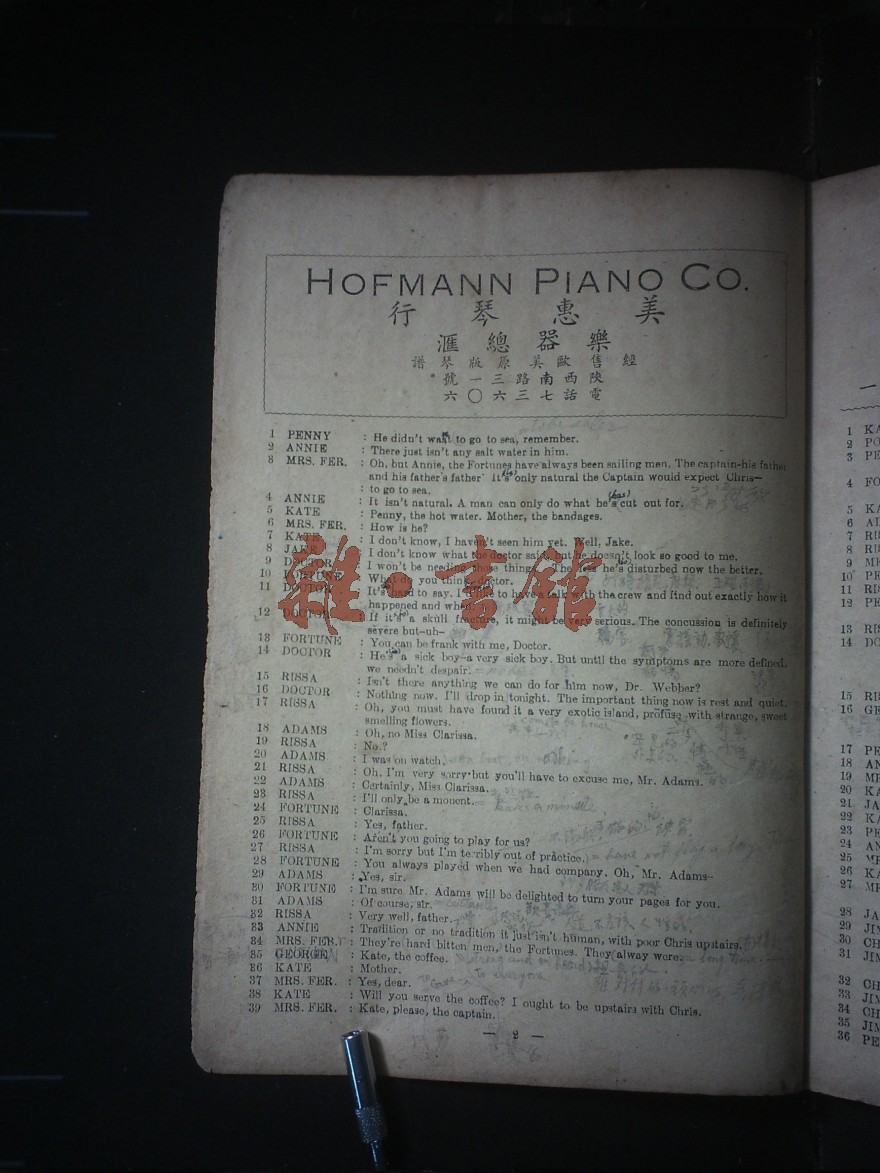 HOFMANN PIANO CO.
行琴惠美
滙總器樂
譜琴版原美歐售經
號一三路南西陝
六〇六三七話電
1 PENNY : He didn't want to go to sea, remember.
2 ANNIE : There just isn't any salt water in him.
3 MRS. FER. : Oh, but Annie, the Fortunes have always been sailing men. The captain-his father
and his father's father It's only natural the Captain would expect Chris—
: to go to sea.
4 ANNIE : It isn't natural. A man can only do what he's cut out for.
(has)
5 KATE : Penny, the hot water. Mother, the bandages.
6 MRS. FER. : How is he?
7 KATE : I don't know, I haven't seen him yet. Well, Jake.
8 JAKE : I don't know what the doctor said, but he doesn't look so good to me.
9 DOCTOR : I won't be needing those things. The less he's disturbed now the better.
10 FORTUNE : What do you think, doctor.
11 DOCTOR : It's hard to say. I'd like to have a talk with the crew and find out exactly how it
happened and when.
12 DOCTOR : If it's a skull fracture, it might be very serious. The concussion is definitely
severe but-uh-
13 FORTUNE : You can be frank with me, Doctor.
14 DOCTOR : He's a sick boy-a very sick boy. But until the symptoms are more defined,
we needn't despair.
15 RISSA : Isn't there anything we can do for him now, Dr. Webber?
16 DOCTOR : Nothing now. I'll drop in tonight. The important thing now is rest and quiet.
17 RISSA : Oh, you must have found it a very exotic island, profuse with strange, sweet
smelling flowers.
18 ADAMS : Oh, no Miss Clarissa.
19 RISSA : No?
20 ADAMS : I was on watch.
21 RISSA : Oh, I'm very sorry but you'll have to excuse me, Mr. Adams.
22 ADAMS : Certainly, Miss Clarissa.
23 RISSA : I'll only be a moment.
24 FORTUNE : Clarissa.
25 RISSA : Yes, father.
26 FORTUNE : Aren't you going to play for us?
27 RISSA : I'm sorry but I'm terribly out of practice.
28 FORTUNE : You always played when we had company. Oh, Mr. Adams--
29 ADAMS : Yes, sir.
30 FORTUNE : I'm sure Mr. Adams will be delighted to turn your pages for you.
31 ADAMS : Of course, sir.
32 RISSA : Very well, father.
33 ANNIE : Tradition or no tradition it just isn't human, with poor Chris upstairs.
34 MRS. FER. : They're hard bitten men, the Fortunes. They alway were.
35 GEORGE : Kate, the coffee.
36 KATE : Mother.
37 MRS. FER. : Yes, dear.
38 KATE : Will you serve the coffee? I ought to be upstairs with Chris.
39 MRS. FER. : Kate, please, the captain.
— 2 —
雜·書館
1 KA
2 PO
3 PE
4 FO
5 KA
6 AD
7 RI
8 RI
9 ME
10 PE
11 RI
12 PE
13 RI
14 DO
15 RI
16 GE
17 PE
18 AN
19 MR
20 KA
21 JA
22 KA
23 PE
24 AN
25 ME
26 KA
27 MR
28 JA
29 JIM
30 CH
31 JIM
32 CH
33 JIM
34 CH
35 JIM
36 PE